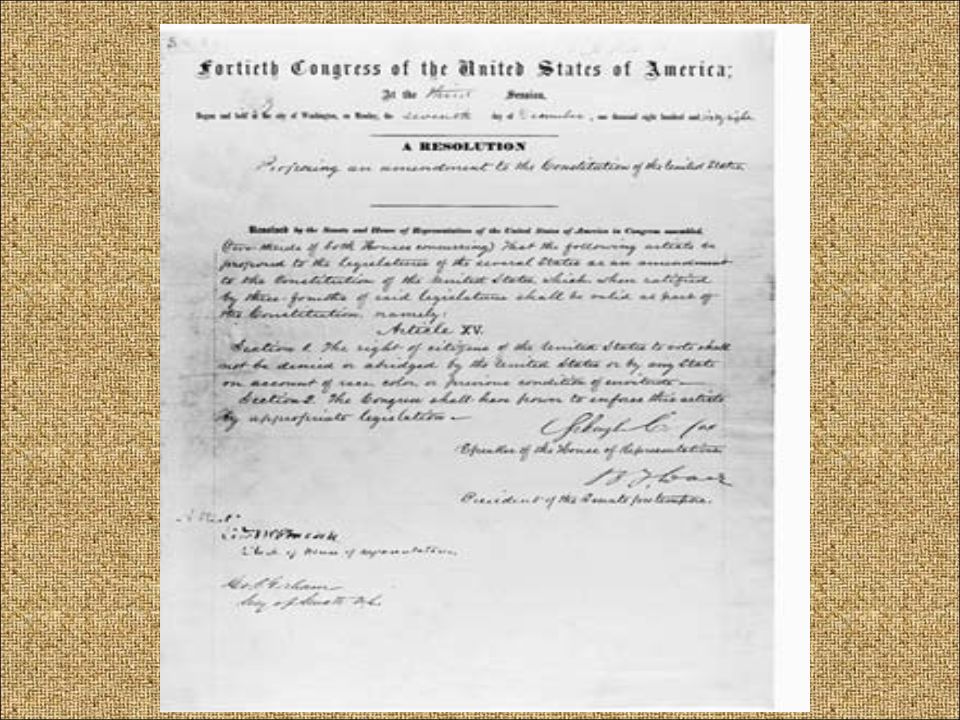 Fortieth Congress of the United States of America;
At the third Session,
Begun and held at the city of Washington, on Monday, the seventh day of December, one thousand eight hundred and sixty-eight
A RESOLUTION
Proposing an amendment to the Constitution of the United States.
Resolved by the Senate and House of Representatives of the United States of America in Congress assembled,
(two-thirds of both Houses concurring) That the following article be
proposed to the legislatures of the several States as an amendment
to the Constitution of the United States, which, when ratified
by three-fourths of said legislatures shall be valid as part of
the Constitution, namely:
Article XV.
Section 1. The right of citizens of the United States to vote shall
not be denied or abridged by the United States or by any State
on account of race, color, or previous condition of servitude—
Section 2. The Congress shall have power to enforce this article
by appropriate legislation—
Speaker of the House of Representatives
President of the Senate pro tempore.
Attest
Clerk of House of Representatives
Secy of Senate U.S.